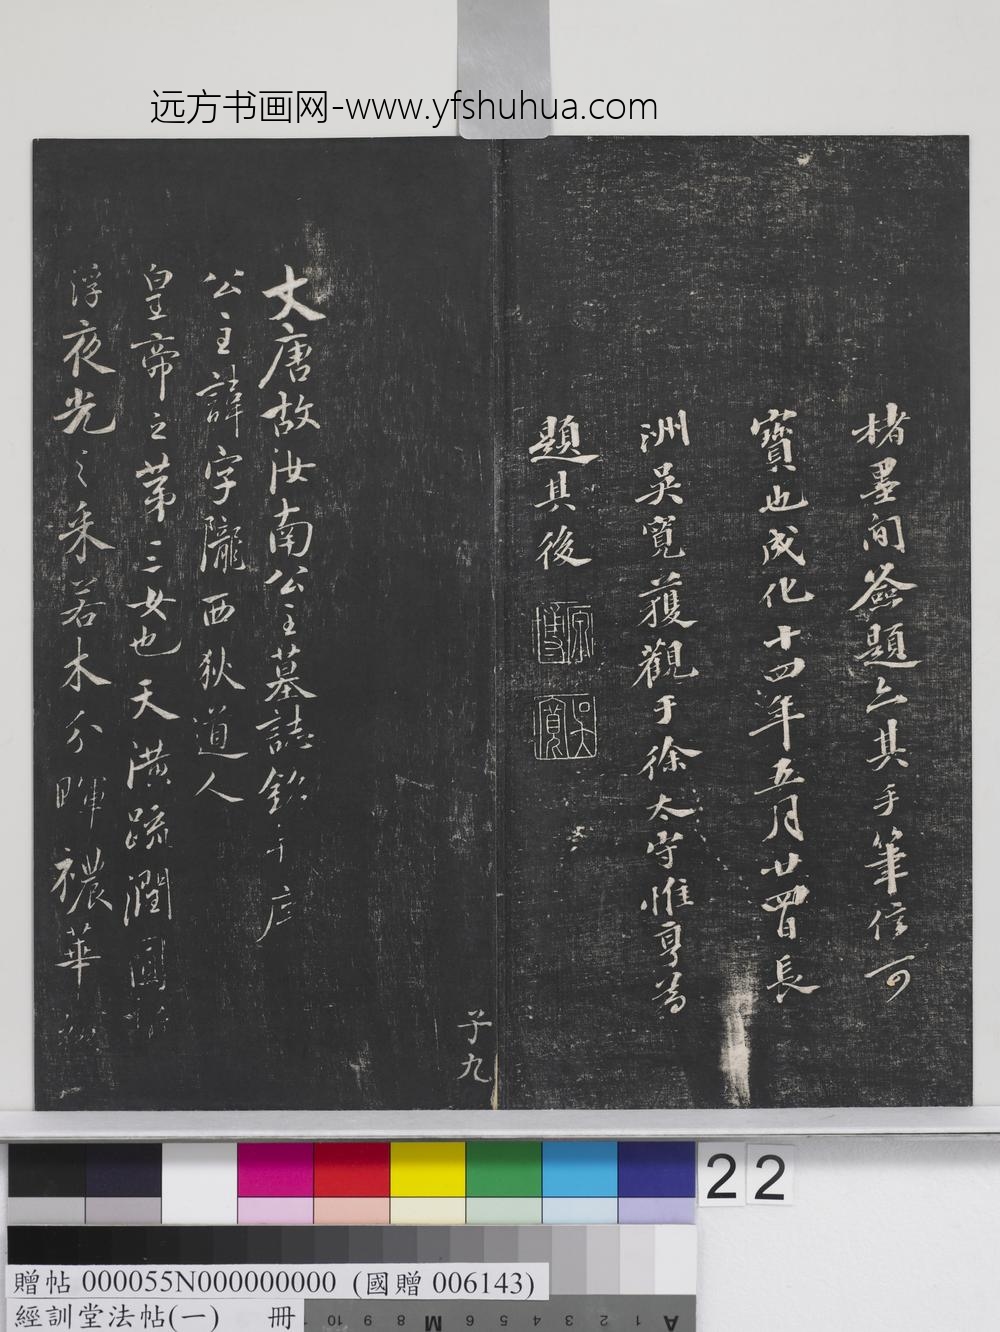 远方书画网-www.yfshuhua.com
楮墨间簽題亦其手筆信可
寶也成化十四年五月廿四日長
洲吴寬獲觀于徐太守惟亨為
題其後
原博
吴寬
子九
大唐故汝南公主墓誌銘并序
公主諱字隴西狄道人
皇帝之第三女也天潢疏潤圓折
浮夜光之采若木分暉穠華
22
贈帖 000055N000000000 (國贈 006143)
經訓堂法帖(一) 冊
10 9 8 M 6 5 4 3 2 1 A